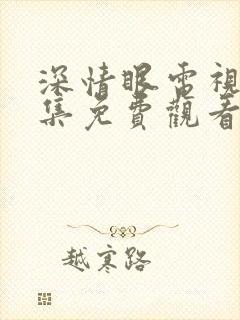 深情眼電視
集免費觀看
越寒路